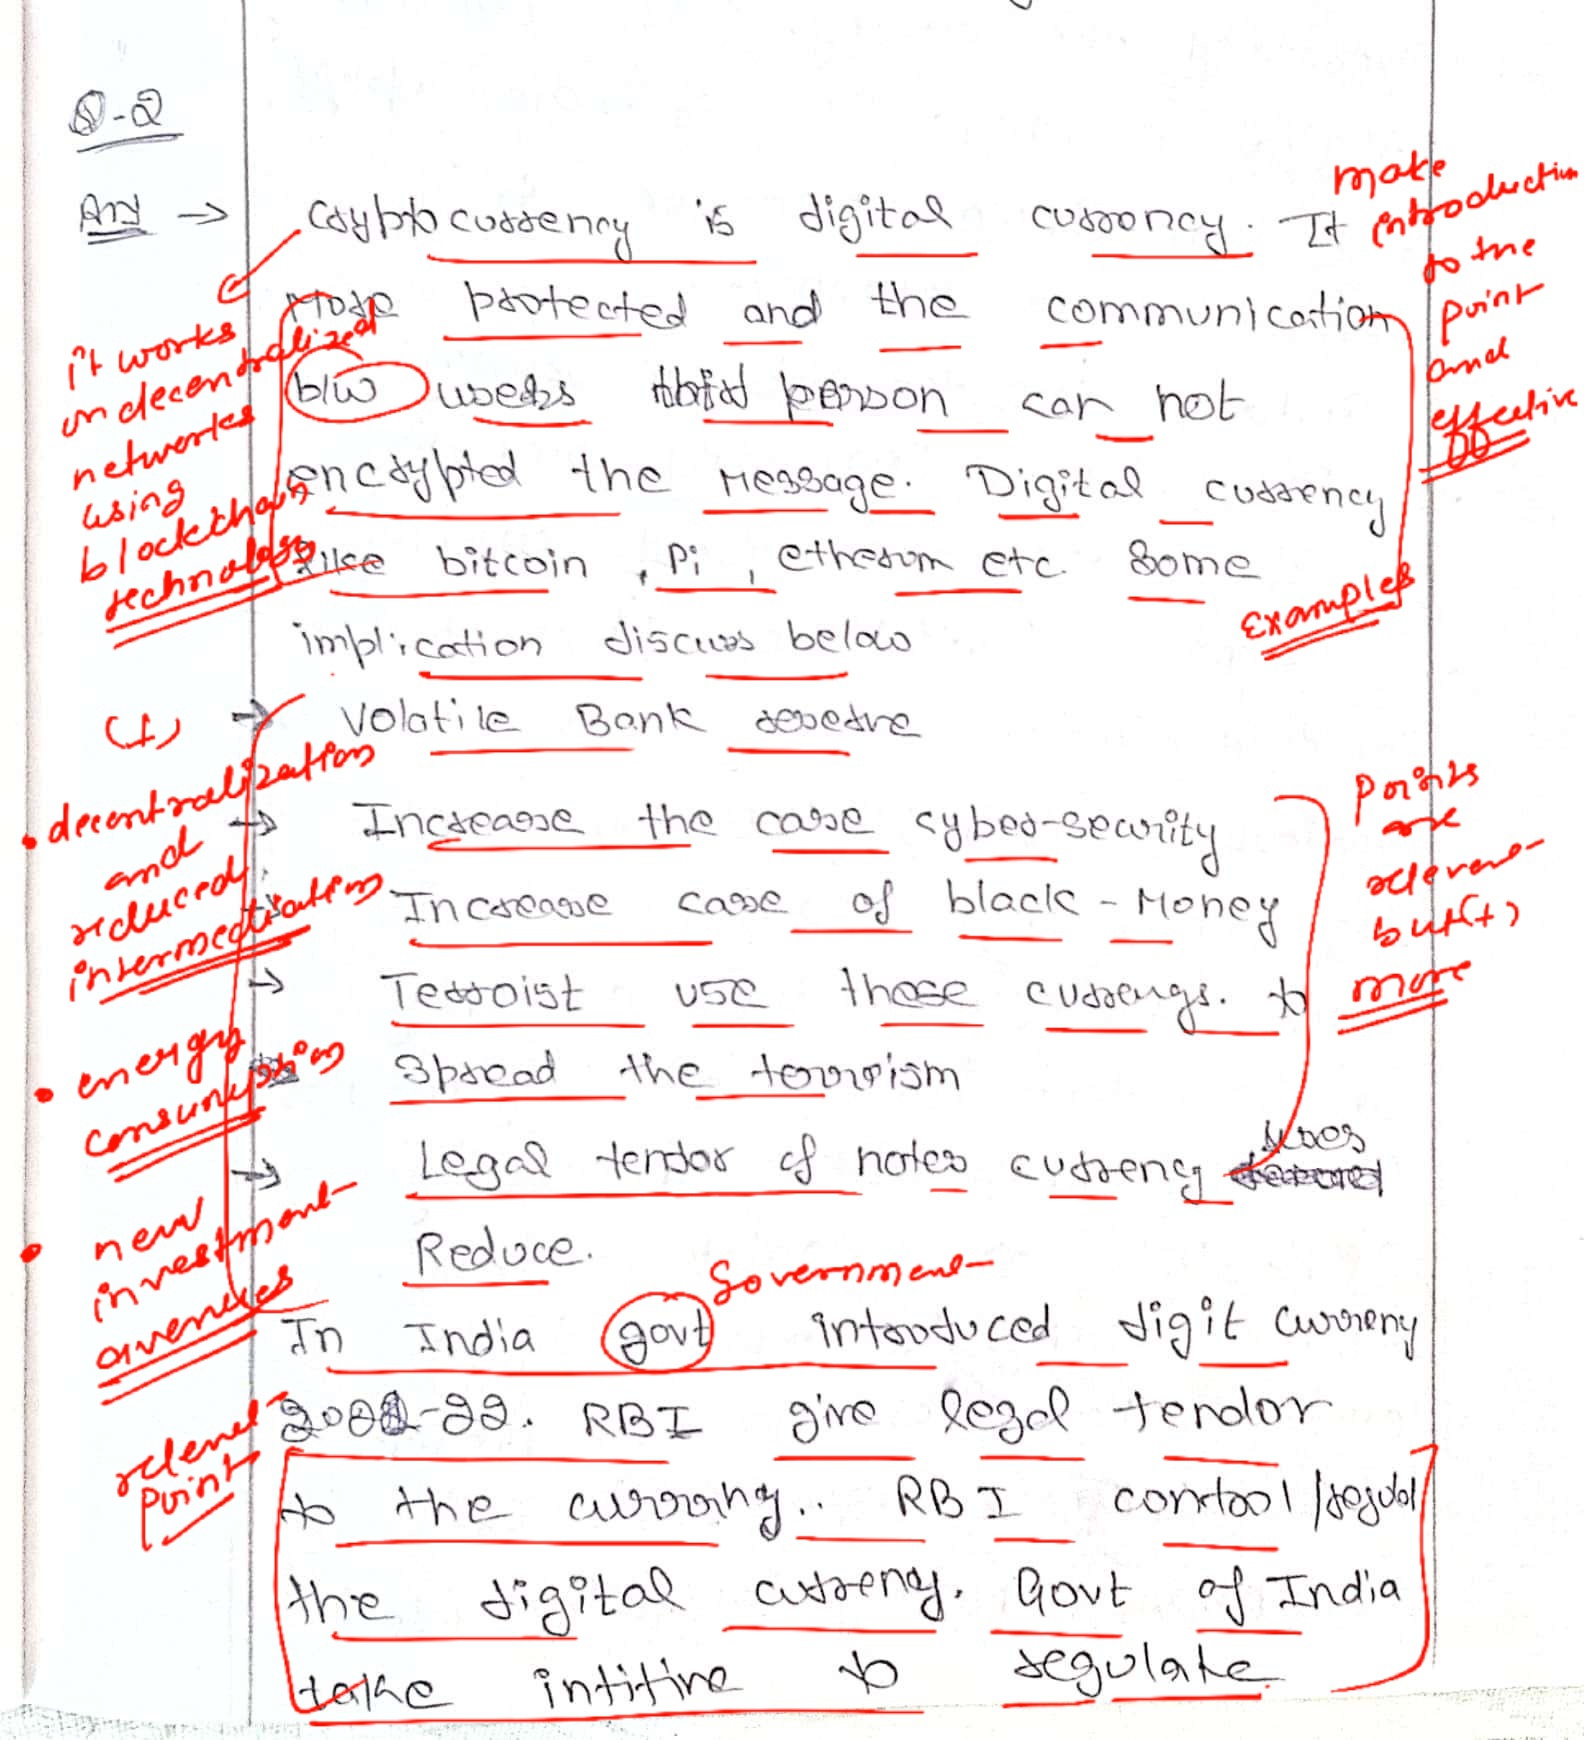 Q-2
Ans → Cryptocurrency is digital curroncy. It
More protected and the communication
b/w users third person can not
encrypted the Message. Digital currency
like bitcoin , Pi , etherum etc. Some
implication discuss below
→ Volatile Bank reserve
→ Increase the case cyber-security
→ Increase case of black-Money
→ Terroist use those currengs. to
Spread the terrorism
→ Legal tendor of notes currency
Reduce.
In India govt introduced digit curreny
-22. RBI give legal tendor
to the currong.. RBI control/regul
the digital curreny. Govt of India
take intitive to regulate
make
introduction
to the
point
and
effective
it works
on decentralized
networks
using
blockchain
technology
Examples
(+)
• decentralization
and
reduced
intermediation
• energy
consumption
• new
investment
avenues
Points
are
relevant
but (+)
more
Government
relevent
point